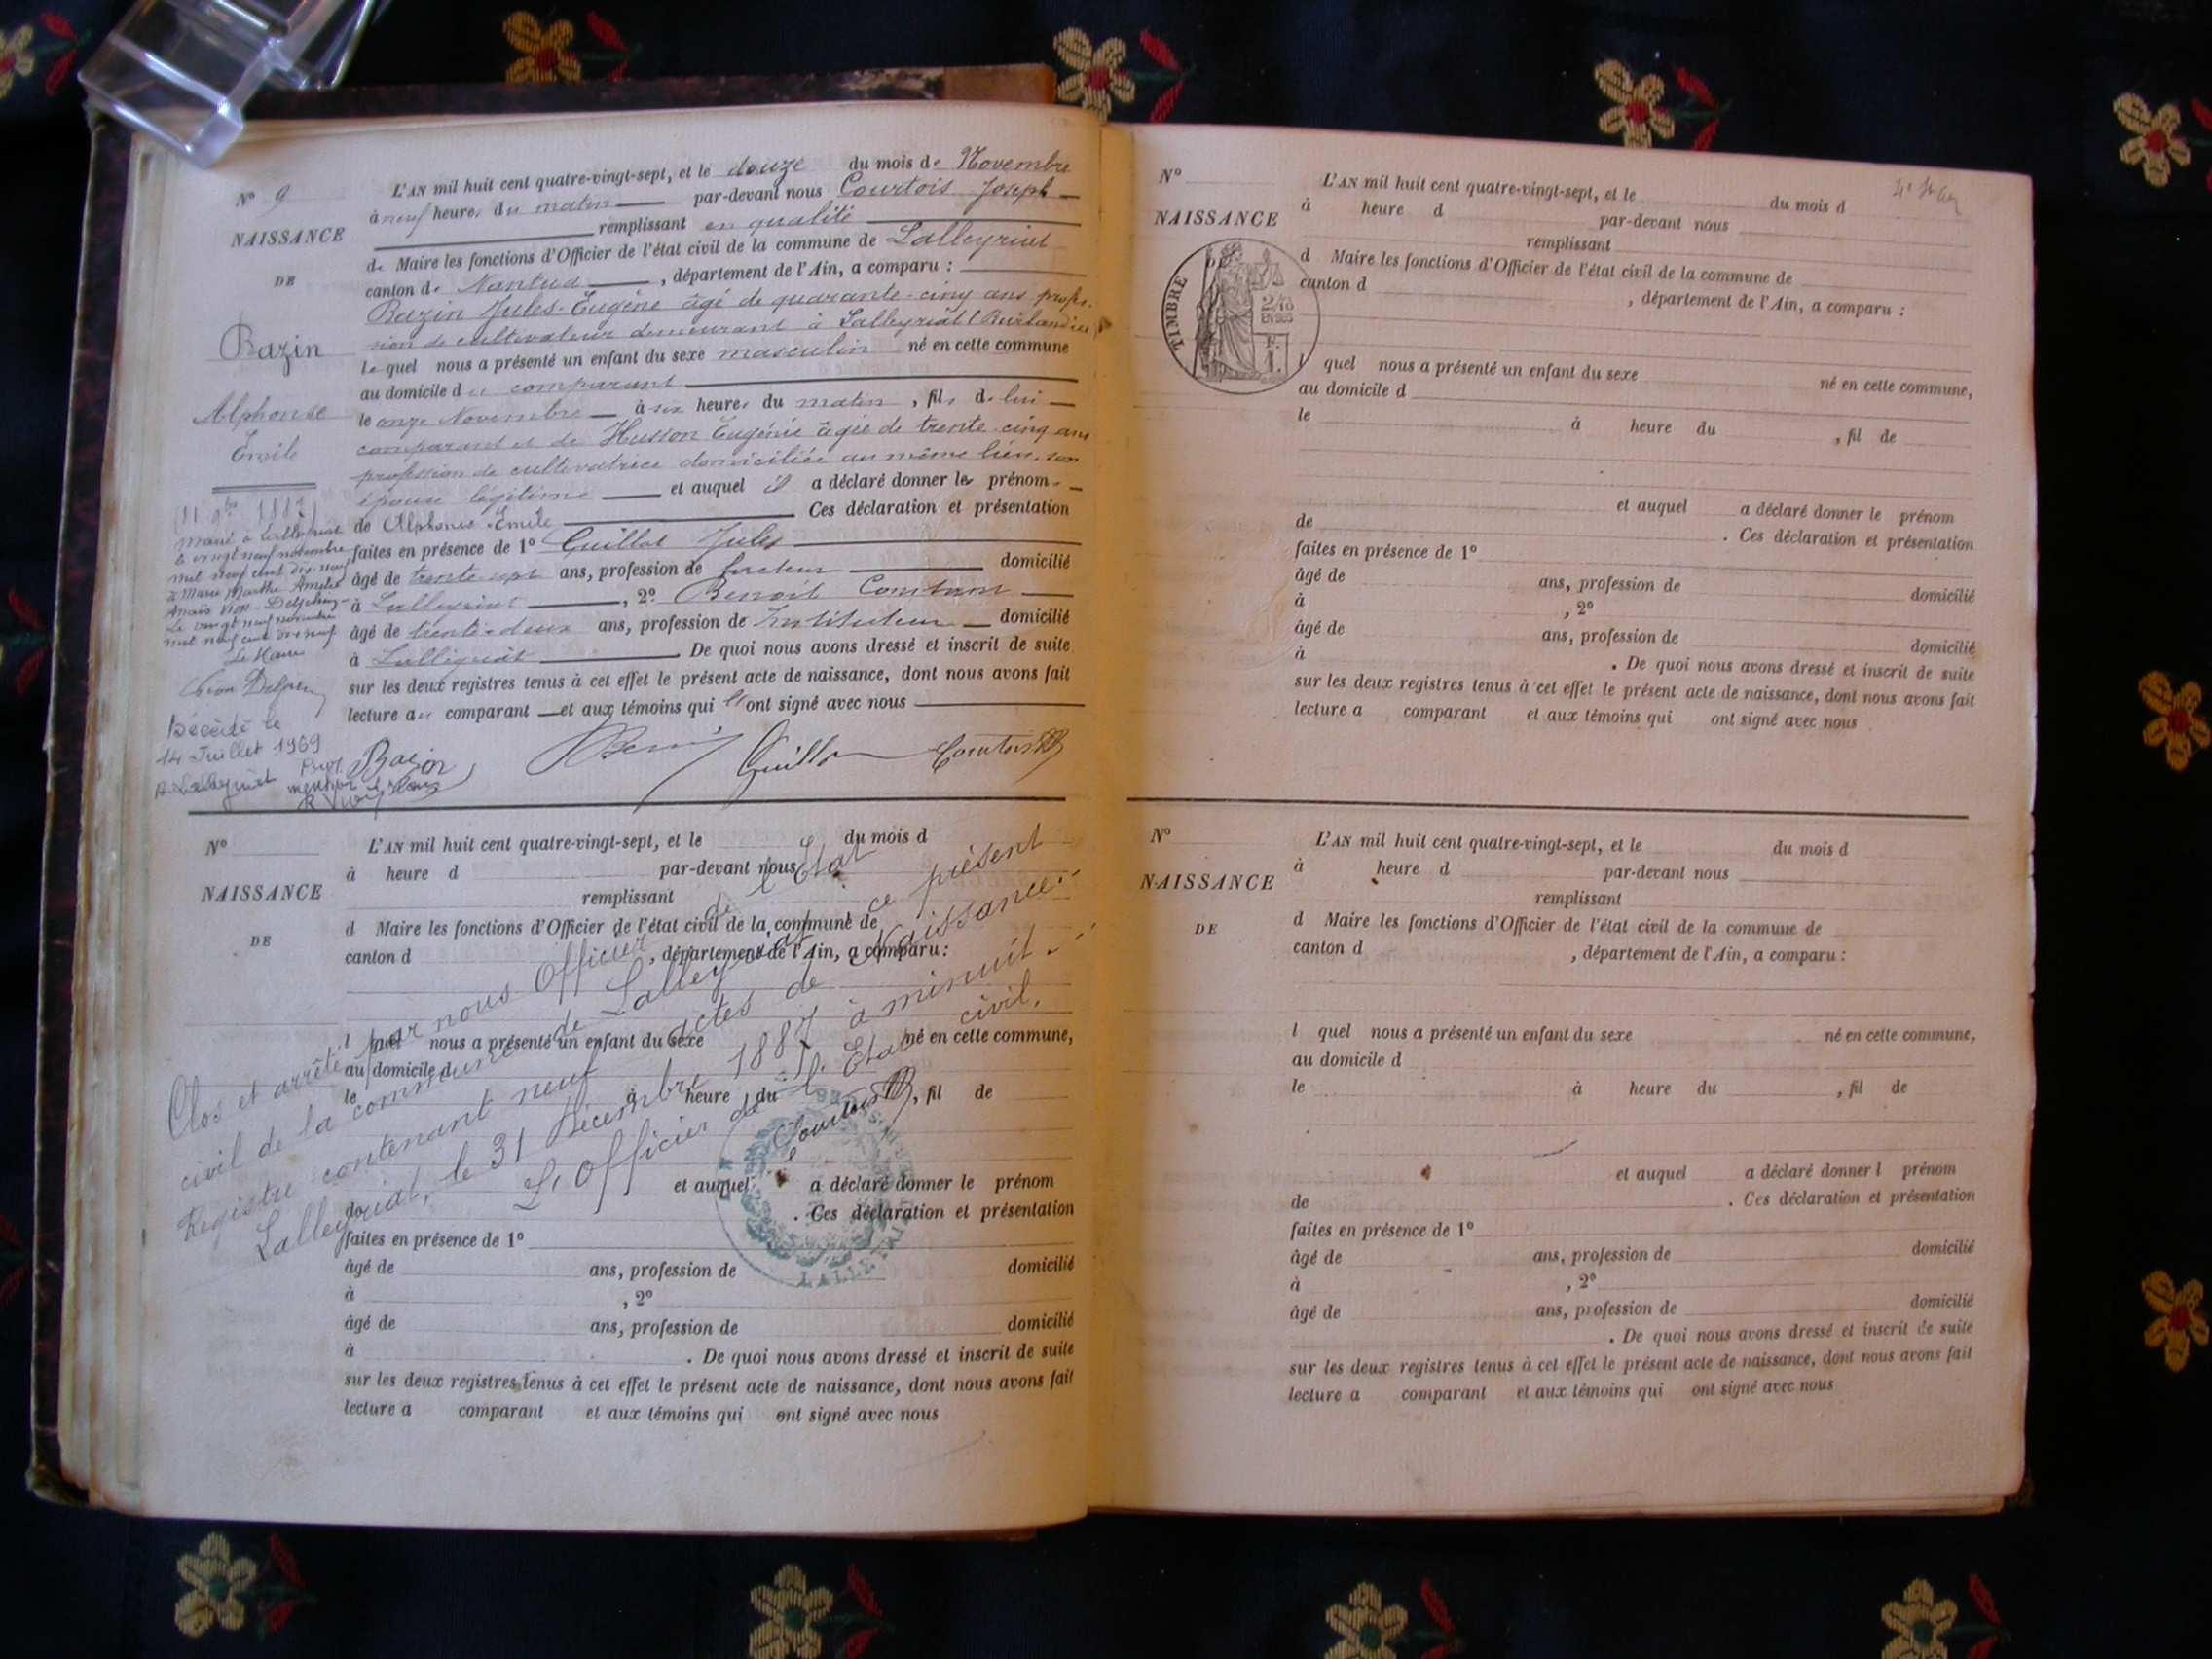 N° 9
NAISSANCE
DE
Bazin
Alphonse
Emile
L'AN mil huit cent quatre-vingt-sept, et le douze du mois de Novembre
à neuf heures du matin par-devant nous Courtois Joseph
remplissant en qualité
de Maire les fonctions d'Officier de l'état civil de la commune de Lalleyriat
canton de Nantua, département de l'Ain, a comparu :
Bazin Jules-Eugène âgé de quarante-cinq ans profes-
sion de cultivateur demeurant à Lalleyriat
lequel nous a présenté un enfant du sexe masculin né en cette commune
au domicile du comparant
le onze Novembre à six heures du matin, fils de lui
comparant et de Husson Eugénie âgée de trente-cinq ans
profession de cultivatrice domiciliée au même lieu, son
épouse légitime et auquel il a déclaré donner les prénoms
de Alphonse-Emile Ces déclaration et présentation
faites en présence de 1° Guillot Jules
âgé de trente-sept ans, profession de facteur domicilié
à Lalleyriat, 2° Benoit Constant
âgé de trente-deux ans, profession de Instituteur domicilié
à Lalleyriat. De quoi nous avons dressé et inscrit de suite
sur les deux registres tenus à cet effet le présent acte de naissance, dont nous avons fait
lecture au comparant et aux témoins qui ont signé avec nous
Bazin Guillot Courtois
(11 9bre 1887)
Marié à Lalleyriat
le vingt neuf novembre
mil neuf cent dix neuf
à Marie Marthe
le vingt neuf novembre
mil neuf cent dix neuf
Le Maire
Décédé le
14 Juillet 1969
à Lalleyriat
mention
N°
NAISSANCE
DE
L'AN mil huit cent quatre-vingt-sept, et le du mois d
à heure d par-devant nous
remplissant
d Maire les fonctions d'Officier de l'état civil de la commune de
canton d , département de l'Ain, a comparu :
l quel nous a présenté un enfant du sexe né en cette commune,
au domicile d
le à heure du , fil de
et auquel a déclaré donner le prénom
de . Ces déclaration et présentation
faites en présence de 1°
âgé de ans, profession de domicilié
à , 2°
âgé de ans, profession de domicilié
à . De quoi nous avons dressé et inscrit de suite
sur les deux registres tenus à cet effet le présent acte de naissance, dont nous avons fait
lecture a comparant et aux témoins qui ont signé avec nous
Clos et arrêté par nous Officier de l'Etat
civil de la commune de Lalleyriat, ce présent
Registre contenant neuf actes de Naissance.
Lalleyriat, le 31 Décembre 1887 à minuit.
L'Officier de l'Etat civil,
Courtois
N°
NAISSANCE
TIMBRE
2/10
EN SUS
L'AN mil huit cent quatre-vingt-sept, et le du mois d
à heure d par-devant nous
remplissant
d Maire les fonctions d'Officier de l'état civil de la commune de
canton d , département de l'Ain, a comparu :
l quel nous a présenté un enfant du sexe né en cette commune,
au domicile d
le à heure du , fil de
et auquel a déclaré donner le prénom
de . Ces déclaration et présentation
faites en présence de 1°
âgé de ans, profession de domicilié
à , 2°
âgé de ans, profession de domicilié
à . De quoi nous avons dressé et inscrit de suite
sur les deux registres tenus à cet effet le présent acte de naissance, dont nous avons fait
lecture a comparant et aux témoins qui ont signé avec nous
N°
NAISSANCE
DE
L'AN mil huit cent quatre-vingt-sept, et le du mois d
à heure d par-devant nous
remplissant
d Maire les fonctions d'Officier de l'état civil de la commune de
canton d , département de l'Ain, a comparu :
l quel nous a présenté un enfant du sexe né en cette commune,
au domicile d
le à heure du , fil de
et auquel a déclaré donner l prénom
de . Ces déclaration et présentation
faites en présence de 1°
âgé de ans, profession de domicilié
à , 2°
âgé de ans, profession de domicilié
. De quoi nous avons dressé et inscrit de suite
sur les deux registres tenus à cet effet le présent acte de naissance, dont nous avons fait
lecture a comparant et aux témoins qui ont signé avec nous